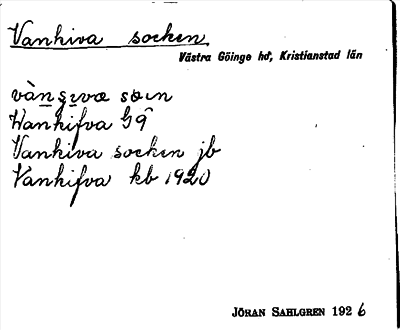 Vanhiva socken
Västra Göinge hd, Kristianstad län
Wanhifva G 9
Vanhiva socken jb
Vanhifva kb 1920
JÖRAN SAHLGREN 1926